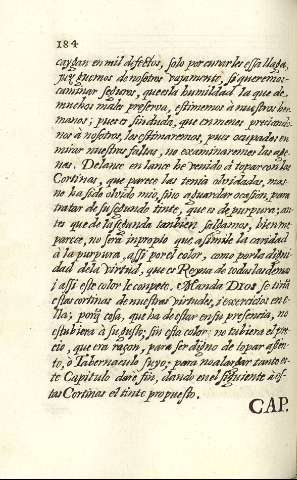 184
caygan en mil defectos, solo por curarles essa llaga,
juzguemos de nosotros vajamente, si queremos
caminar seguros, que es la humildad la que de
muchos males preserva, estimemos à nuestros her-
manos; pues sin duda, que en menos preciando-
nos à nosotros, los estimaremos, pues ocupados en
mirar nuestras faltas, no examinaremos las age-
nas. De lance en lance he venido à topar con las
Cortinas, que parece las tenia olvidadas, mas
no ha sido olvido mio, sino aguardar ocasion, para
tratar de su segundo tinte, que es de purpura; an-
tes que de la segunda tambien salgamos, bien me
parece, no será inpropio que assimile la caridad
à la purpura, assi por el color, como por la digni-
dad de la virtud, que es Reyna de todas las demas
i assi este color le conpete. Manda Dios se tiña
estas cortinas de nuestras virtudes, i exercicios en e-
lla; porq cosa, que ha de estar en su presencia, no
estubiera à su gusto, sin esta color: no tubiera el pre-
cio, que era raçon, para ser digno de topar assien-
to, ò Tabernaculo suyo; para no alargar tanto es-
te Capitulo daré fin, dando en el siguiente à es-
tas Cortinas el tinte propuesto.
CAP.